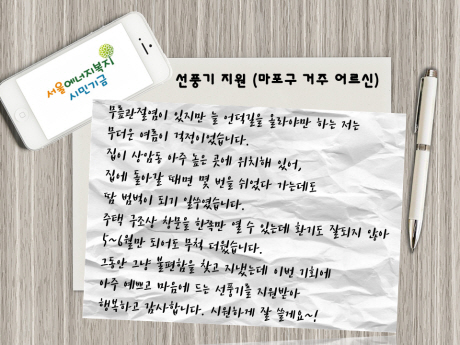 서울에너지복지
시민기금
선풍기 지원 (마포구 거주 어르신)
무릎관절염이 있지만 늘 언덕길을 올라야만 하는 저는
무더운 여름이 걱정이었습니다.
집이 상암동 아주 높은 곳에 위치해 있어,
집에 돌아갈 때면 몇 번을 쉬었다 가는데도
땀 범벅이 되기 일쑤였습니다.
주택 구조상 창문을 한쪽만 열 수 있는데 환기도 잘되지 않아
5~6월만 되어도 무척 더웠습니다.
그동안 그냥 불편함을 참고 지냈는데 이번 기회에
아주 예쁘고 마음에 드는 선풍기를 지원받아
행복하고 감사합니다. 시원하게 잘 쓸게요~!